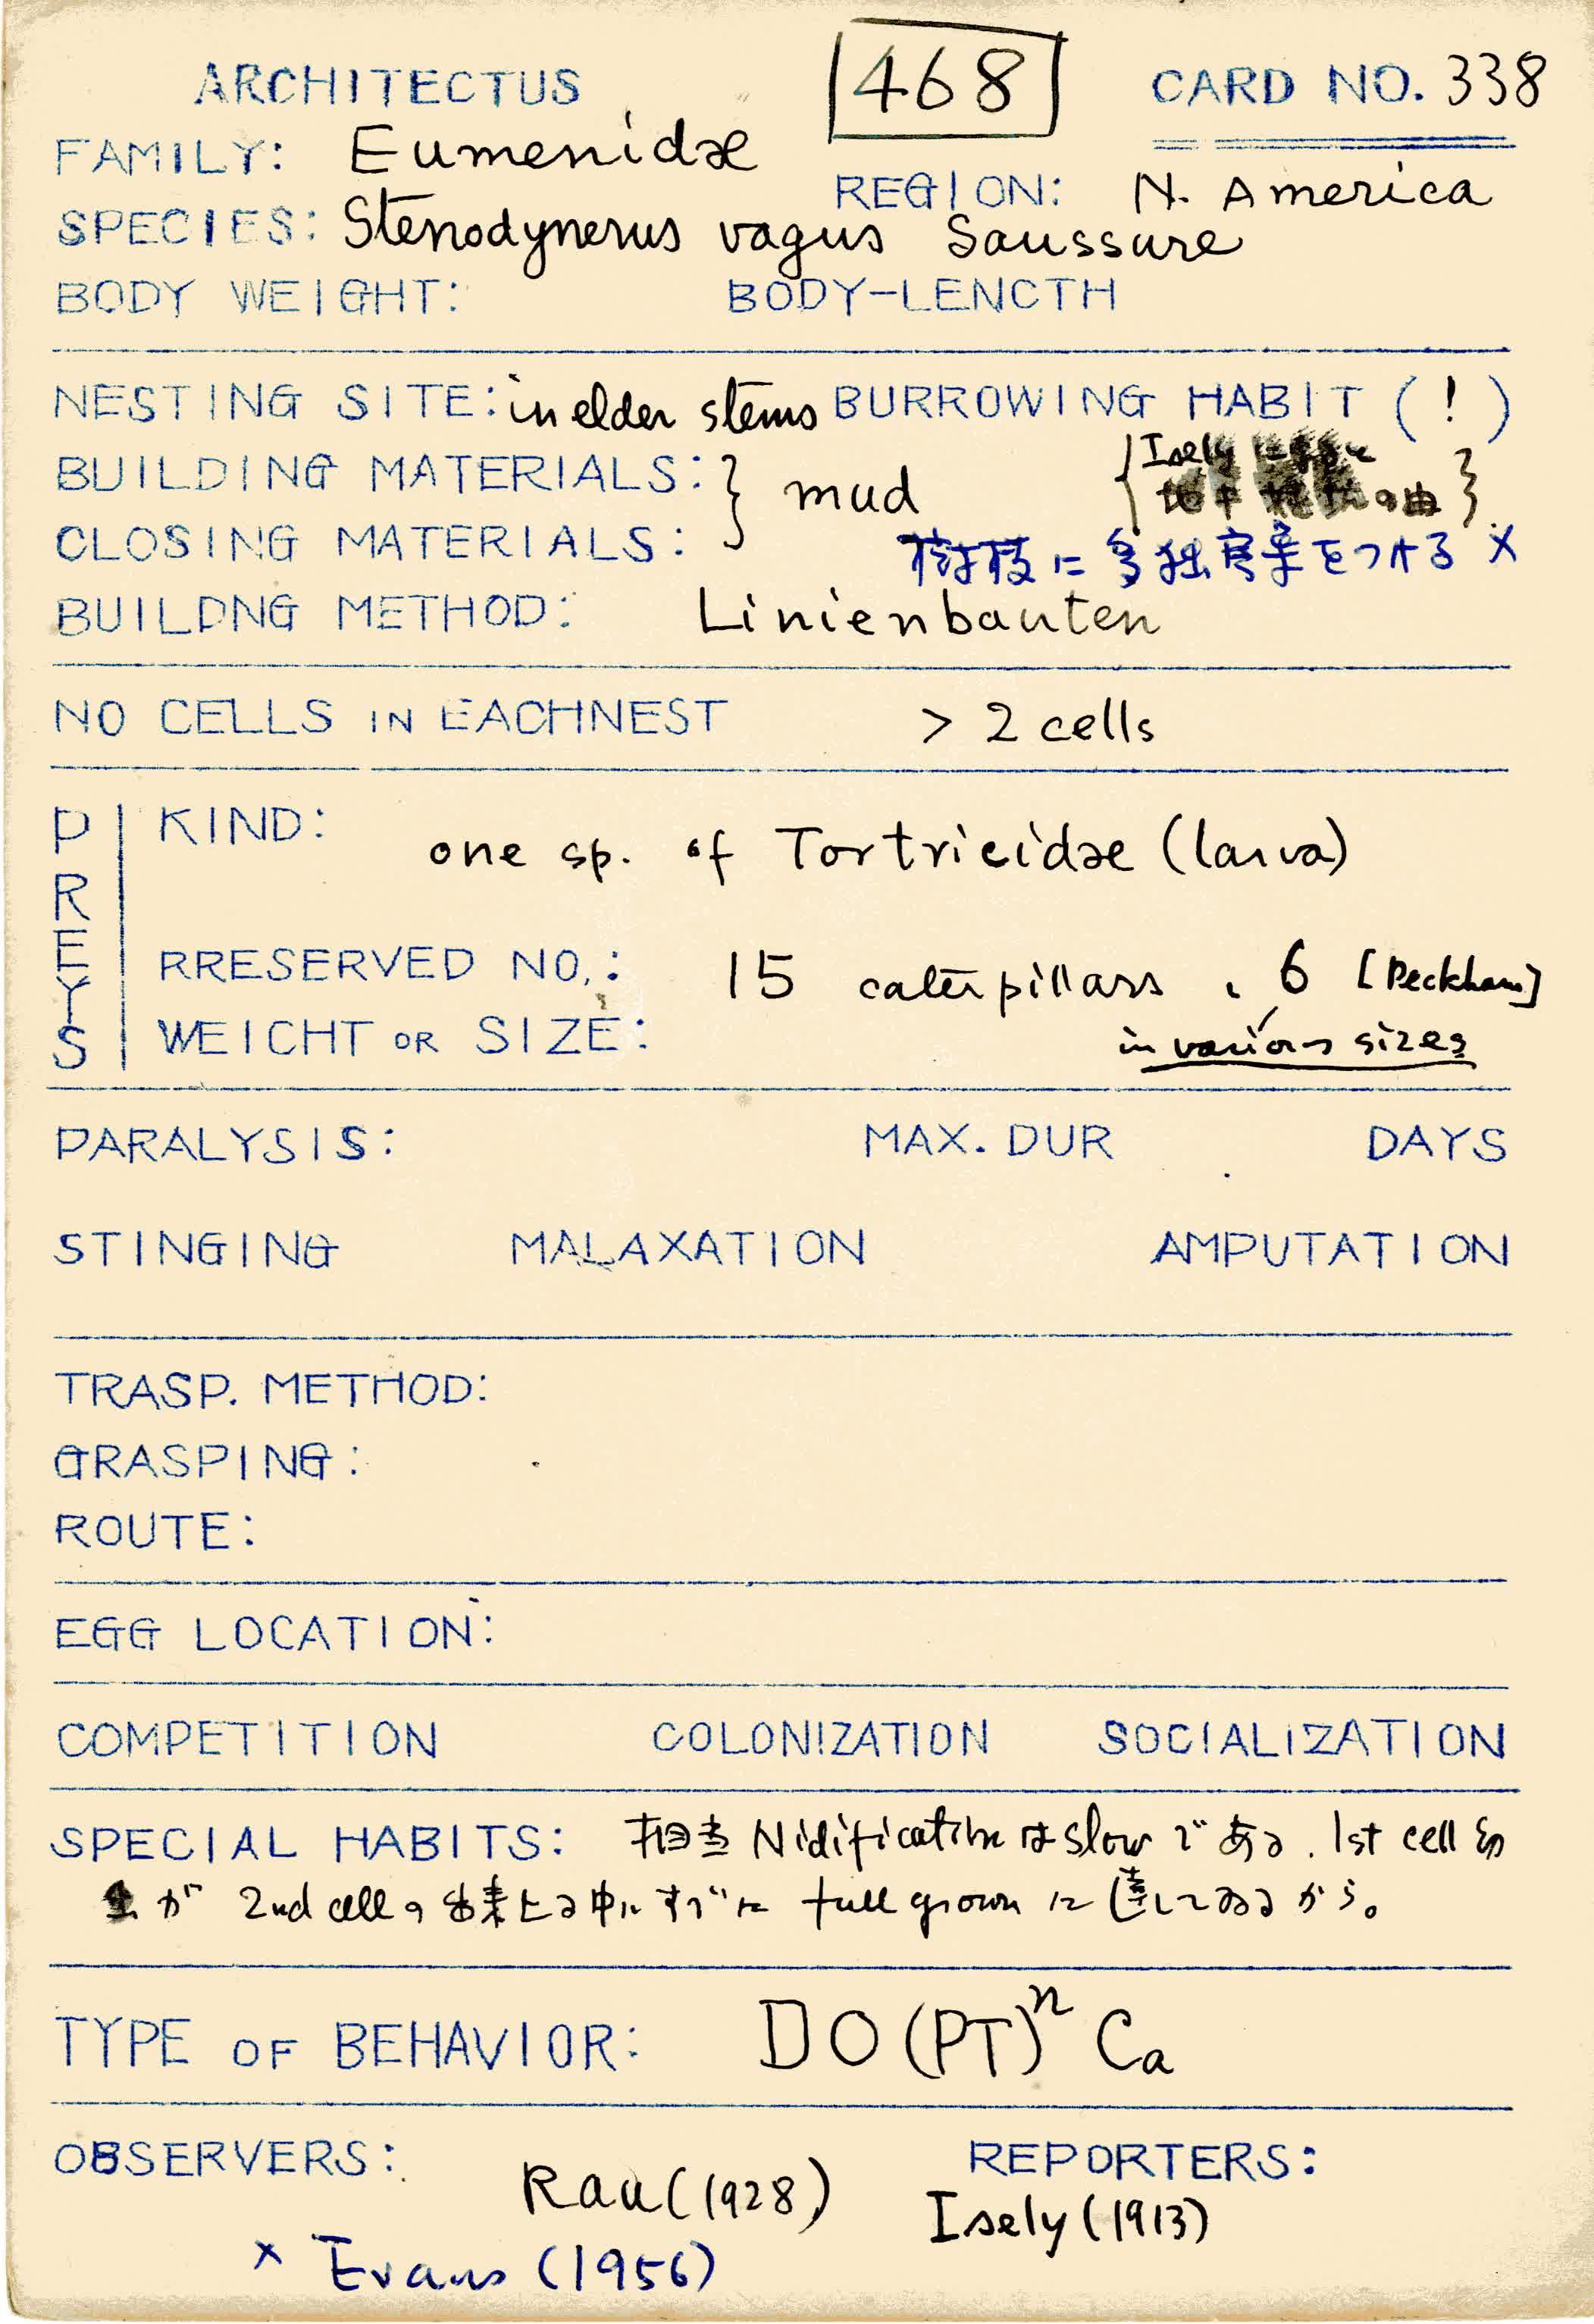 ARCHITECTUS 468 CARD NO. 338
FAMILY: Eumenidæ
REGION: N. America
SPECIES: Stenodynerus vagus Saussure
BODY WEIGHT: BODY-LENCTH
NESTING SITE: in elder stems BURROWING HABIT ( ! )
BUILDING MATERIALS: } mud { Isely }
CLOSING MATERIALS: 樹枝に多独房巣をつける ×
BUILDNG METHOD: Linienbauten
NO CELLS IN EACHNEST > 2 cells
PREYS
KIND: one sp. of Tortricidæ (larva)
RRESERVED NO.: 15 caterpillars, 6 [Peckham]
WEICHT OR SIZE: in various sizes
PARALYSIS: MAX. DUR DAYS
STINGING MALAXATION AMPUTATION
TRASP. METHOD:
GRASPING:
ROUTE:
EGG LOCATION:
COMPETITION COLONIZATION SOCIALIZATION
SPECIAL HABITS: 相当 Nidification は slow である. 1st cell の
が 2nd cell の出来上る中にすでに full grown に達してゐるから。
TYPE OF BEHAVIOR: DO(PT)ⁿ Ca
OBSERVERS: REPORTERS:
Rau (1928) Isely (1913)
× Evans (1956)